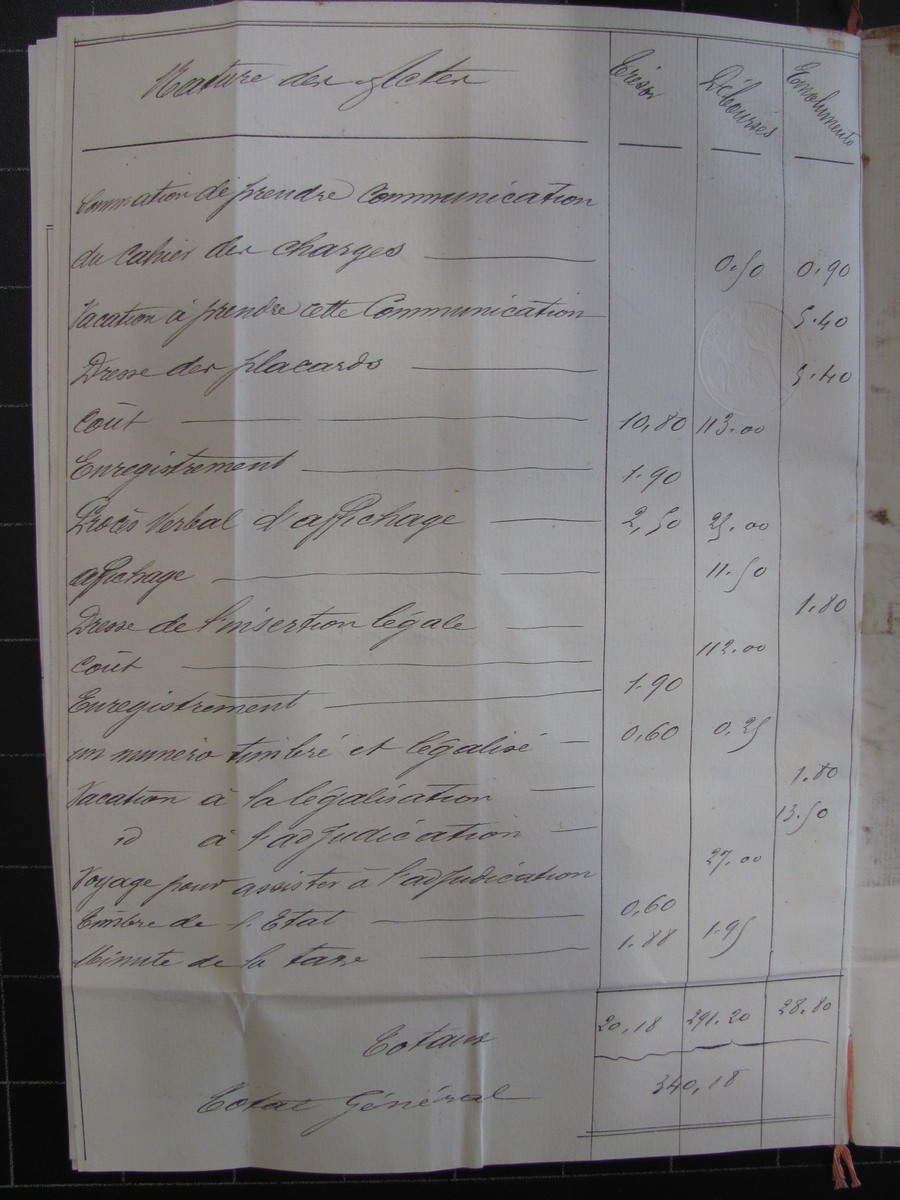 Nature des Actes Trésor Déboursés Emoluments
Sommation de prendre Communication
du Cahier des charges 0.50 0.90
Vacation à prendre cette Communication 5.40
Dresse des placards 5.40
Coût 10,80 113.00
Enregistrement 1.90
Procès Verbal d'affichage 2,50 25.00
affichage 11.50
Dresse de l'insertion légale 1.80
Coût 112.00
Enregistrement 1.90
un numéro timbré et légalisé 0,60 0.25
Vacation à la légalisation 1.80
id à l'adjudication 13.50
Voyage pour assister à l'adjudication 27.00
Timbre de l'Etat 0,60
Minute de la taxe 1.88 1.95
Totaux 20,18 291.20 28.80
Total Général 340,18